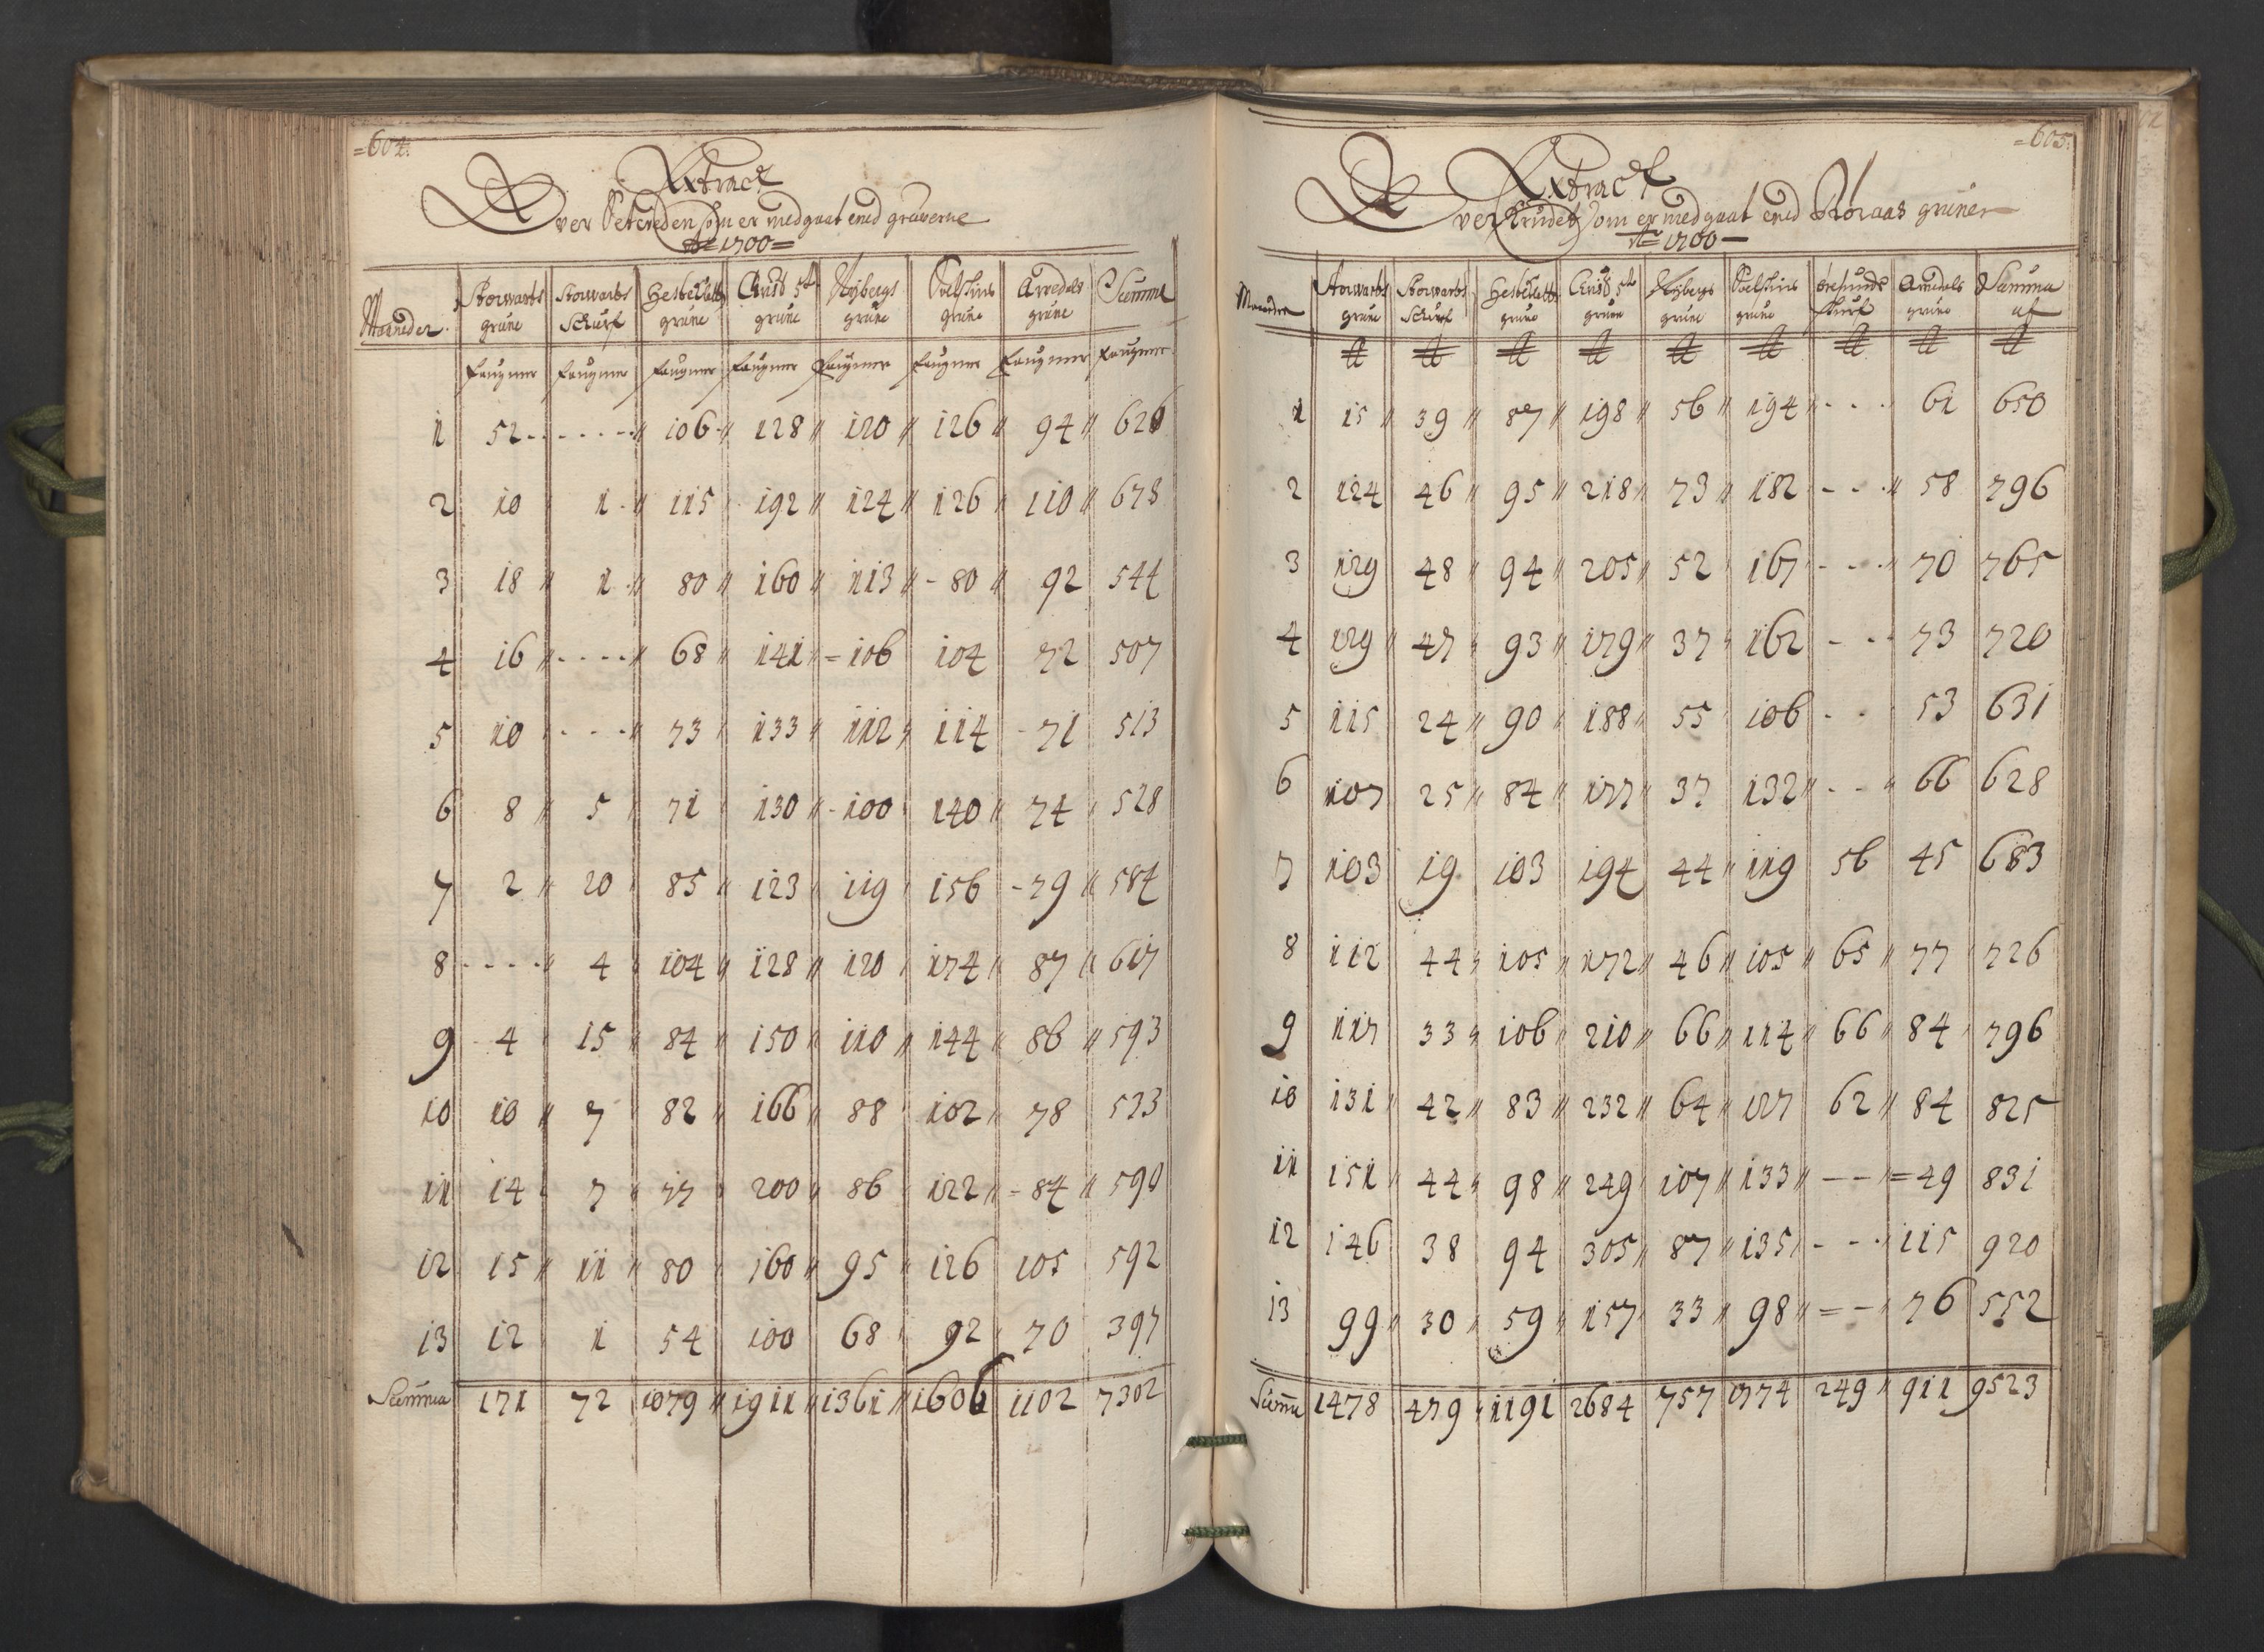 =604:
Extract
Over Setveden som er medgaat ved gruverne
Ao=1700=
Maaneder Storwarts grube Storwarts Schurf Hesteklett grube Christ 5ti grube Nybergs grube Solskins grube Arvedals grube Summa
faugner faugner faugner faugner faugner faugner faugner faugner
1 52 ------ 106 128 120 126 94 626
2 10 1 115 192 124 126 110 678
3 18 1 80 160 113 80 92 544
4 16 ---- 68 141 106 104 72 507
5 10 ---- 73 133 112 114 71 513
6 8 5 71 130 100 140 74 528
7 2 20 85 123 119 156 79 584
8 ---- 4 104 128 120 174 87 617
9 4 15 84 150 110 144 86 593
10 10 7 82 166 88 102 78 533
11 14 7 77 200 86 122 84 590
12 15 11 80 160 95 126 105 592
13 12 1 54 100 68 92 70 397
Summa 171 72 1079 1911 1361 1606 1102 7302
=605:
Extract
Over Krudet som er medgaat ved Røraas gruver
Ao=1700
Maaneder Storwarts grube Storwarts Schurf Hesteklett grube Christ 5ti grube Nybergs grube Solskins grube Øresunds skurf Arvedals grube Summa af
℔ ℔ ℔ ℔ ℔ ℔ ℔ ℔ ℔
1 15 39 87 198 56 194 --- 61 650
2 124 46 95 218 73 182 --- 58 796
3 129 48 94 205 52 167 --- 70 765
4 129 47 93 179 37 162 --- 73 720
5 115 24 90 188 55 106 --- 53 631
6 107 25 84 177 37 132 --- 66 628
7 103 19 103 194 44 119 56 45 683
8 112 44 105 172 46 105 65 77 726
9 117 33 106 210 66 114 66 84 796
10 131 42 83 232 64 127 62 84 825
11 151 44 98 249 107 133 -- 49 831
12 146 38 94 305 87 135 --- 115 920
13 99 30 59 157 33 98 =- 76 552
Summa 1478 479 1191 2684 757 1774 249 911 9523